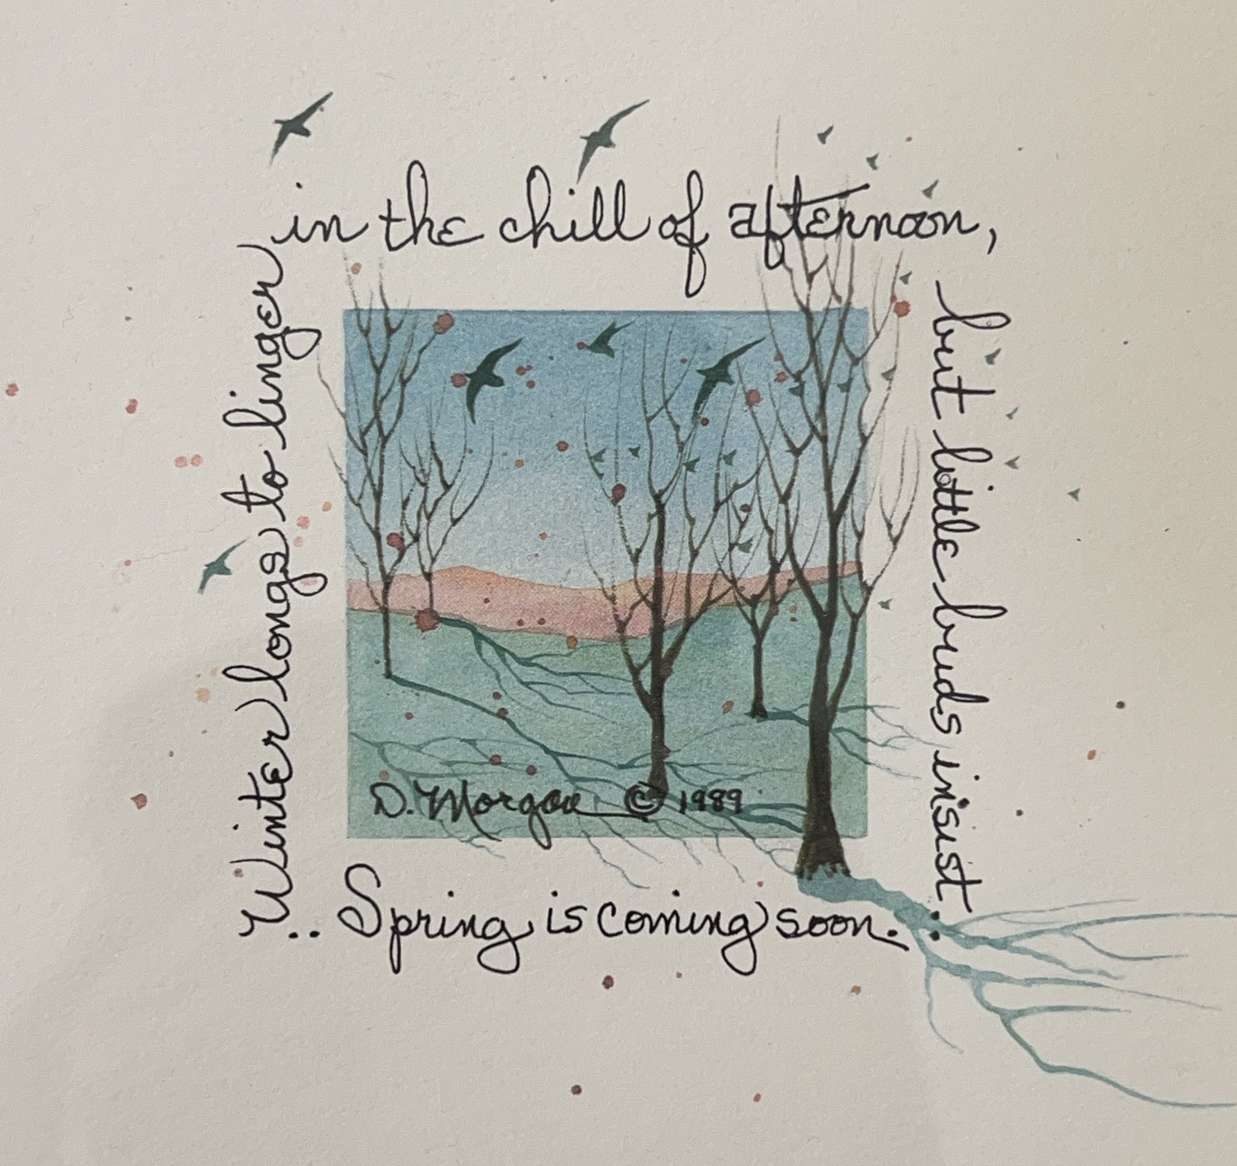 Winter longs to linger
in the chill of afternoon,
but little buds insist..
.. Spring is coming soon.
D. Morgan © 1989